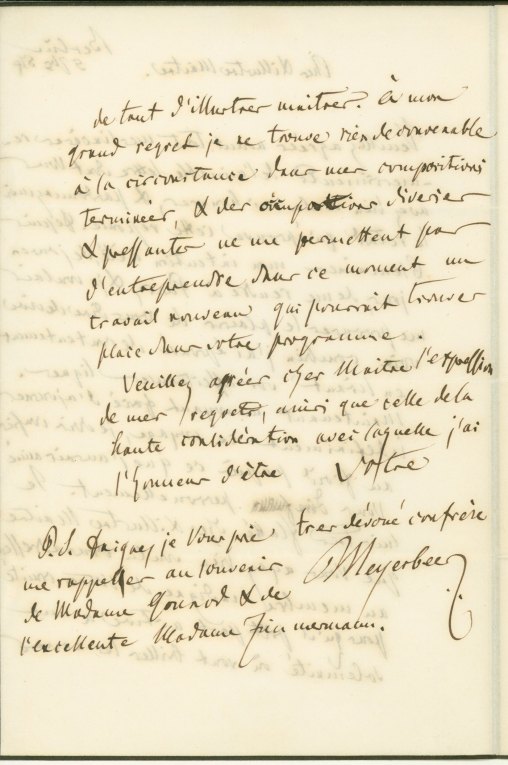 de tout d'illustres maîtres. à mon
grand regret je ne trouve rien de convenable
à la circonstance dans mes compositions
terminées, & des occupations diverses
& pressantes ne me permettent pas
d'entreprendre dans ce moment un
travail nouveau qui pourrait trouver
place dans votre programme.
Veuillez agréer cher Maitre l'expression
de mes regrets, ainsi que celle de la
haute considération avec laquelle j'ai
l'honneur d'être Votre
très dévoué confrère
Meyerbeer
P.S. Daignez je vous prie
me rappeller au souvenir
de Madame Gounod & de
l'excellente Madame Zimmermann.